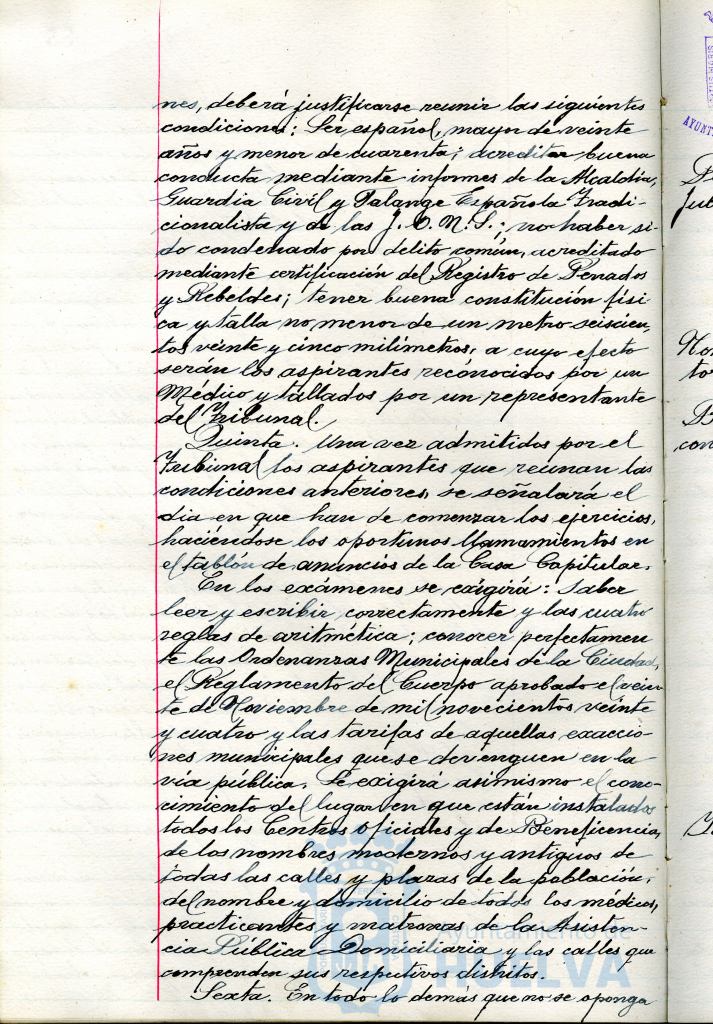 nes, deberá justificarse reunir las siguientes
condiciones: Ser español, mayor de veinte
años y menor de cuarenta; acreditar buena
conducta mediante informes de la Alcaldía,
Guardia Civil y Falange Española Tradi-
cionalista y de las J.O.N.S.; no haber si-
do condenado por delito común, acreditado
mediante certificación del Registro de Penados
y Rebeldes; tener buena constitución físi-
ca y talla no menor de un metro seiscien-
tos veinte y cinco milímetros, a cuyo efecto
serán los aspirantes reconocidos por un
Médico y tallados por un representante
del Tribunal.
Quinta. Una vez admitidos por el
Tribunal los aspirantes que reunan las
condiciones anteriores, se señalará el
dia en que han de comenzar los ejercicios,
haciéndose los oportunos llamamientos en
el tablón de anuncios de la Casa Capitular.
En los exámenes se exigirá: Saber
leer y escribir correctamente y las cuatro
reglas de aritmética; conocer perfectamen
te las Ordenanzas Municipales de la Ciudad,
el Reglamento del Cuerpo aprobado el vein-
te de Noviembre de mil novecientos veinte
y cuatro y las tarifas de aquellas exaccio-
nes municipales que se devenguen en la
vía pública. Se exigirá asimismo el cono-
cimiento del lugar en que están instalados
todos los Centros oficiales y de Beneficencia,
de los nombres modernos y antiguos de
todas las calles y plazas de la población,
del nombre y domicilio de todos los médicos,
practicantes y matronas de la Asisten-
cia Pública Domiciliaria y las calles que
comprenden sus respectivos distritos.
Sexta. En todo lo demás que no se oponga
Ayuntamiento de
HUELVA